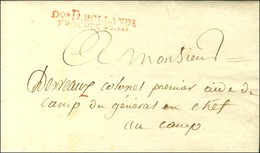 Don D'HOLLANDE
A Monsieur
Derveaux colonel premier aide de
camp du général en chef
au camp